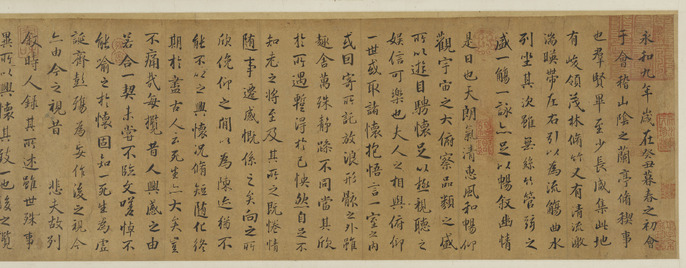 永和九年歲在癸丑暮春之初會
于會稽山陰之蘭亭脩禊事
也羣賢畢至少長咸集此地
有峻領茂林脩竹又有清流激
湍暎帶左右引以為流觴曲水
列坐其次雖無絲竹管弦之
盛一觴一詠亦足以暢敘幽情
是日也天朗氣清惠風和暢仰
觀宇宙之大俯察品類之盛
所以遊目騁懷足以極視聽之
娛信可樂也夫人之相與俯仰
一世或取諸懷抱悟言一室之内
或因寄所託放浪形骸之外雖
趣舍萬殊靜躁不同當其欣
於所遇暫得於己怏然自足不
知老之將至及其所之既惓情
隨事遷感慨係之矣向之所
欣俛仰之閒以為陳迹猶不
能不以之興懷況脩短隨化終
期於盡古人云死生亦大矣豈
不痛哉每攬昔人興感之由
若合一契未嘗不臨文嗟悼不
能喻之於懷固知一死生為虛
誕齊彭殤為妄作後之視今
亦由今之視昔 悲夫故列
敘時人錄其所述雖世殊事
異所以興懷其致一也後之攬